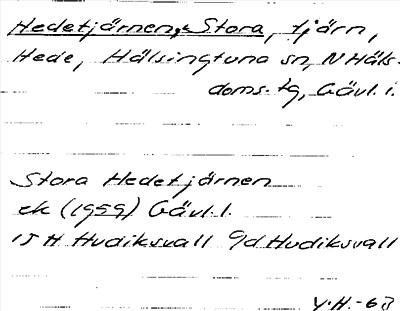 Hedetjärnen, Stora, tjärn,
Hede, Hälsingtuna sn, N Häls.
doms. tg, Gävl. l.
Stora Hedetjärnen
ek (1959) Gävl. l.
15 H Hudiksvall 9d Hudiksvall
Y.H.-63